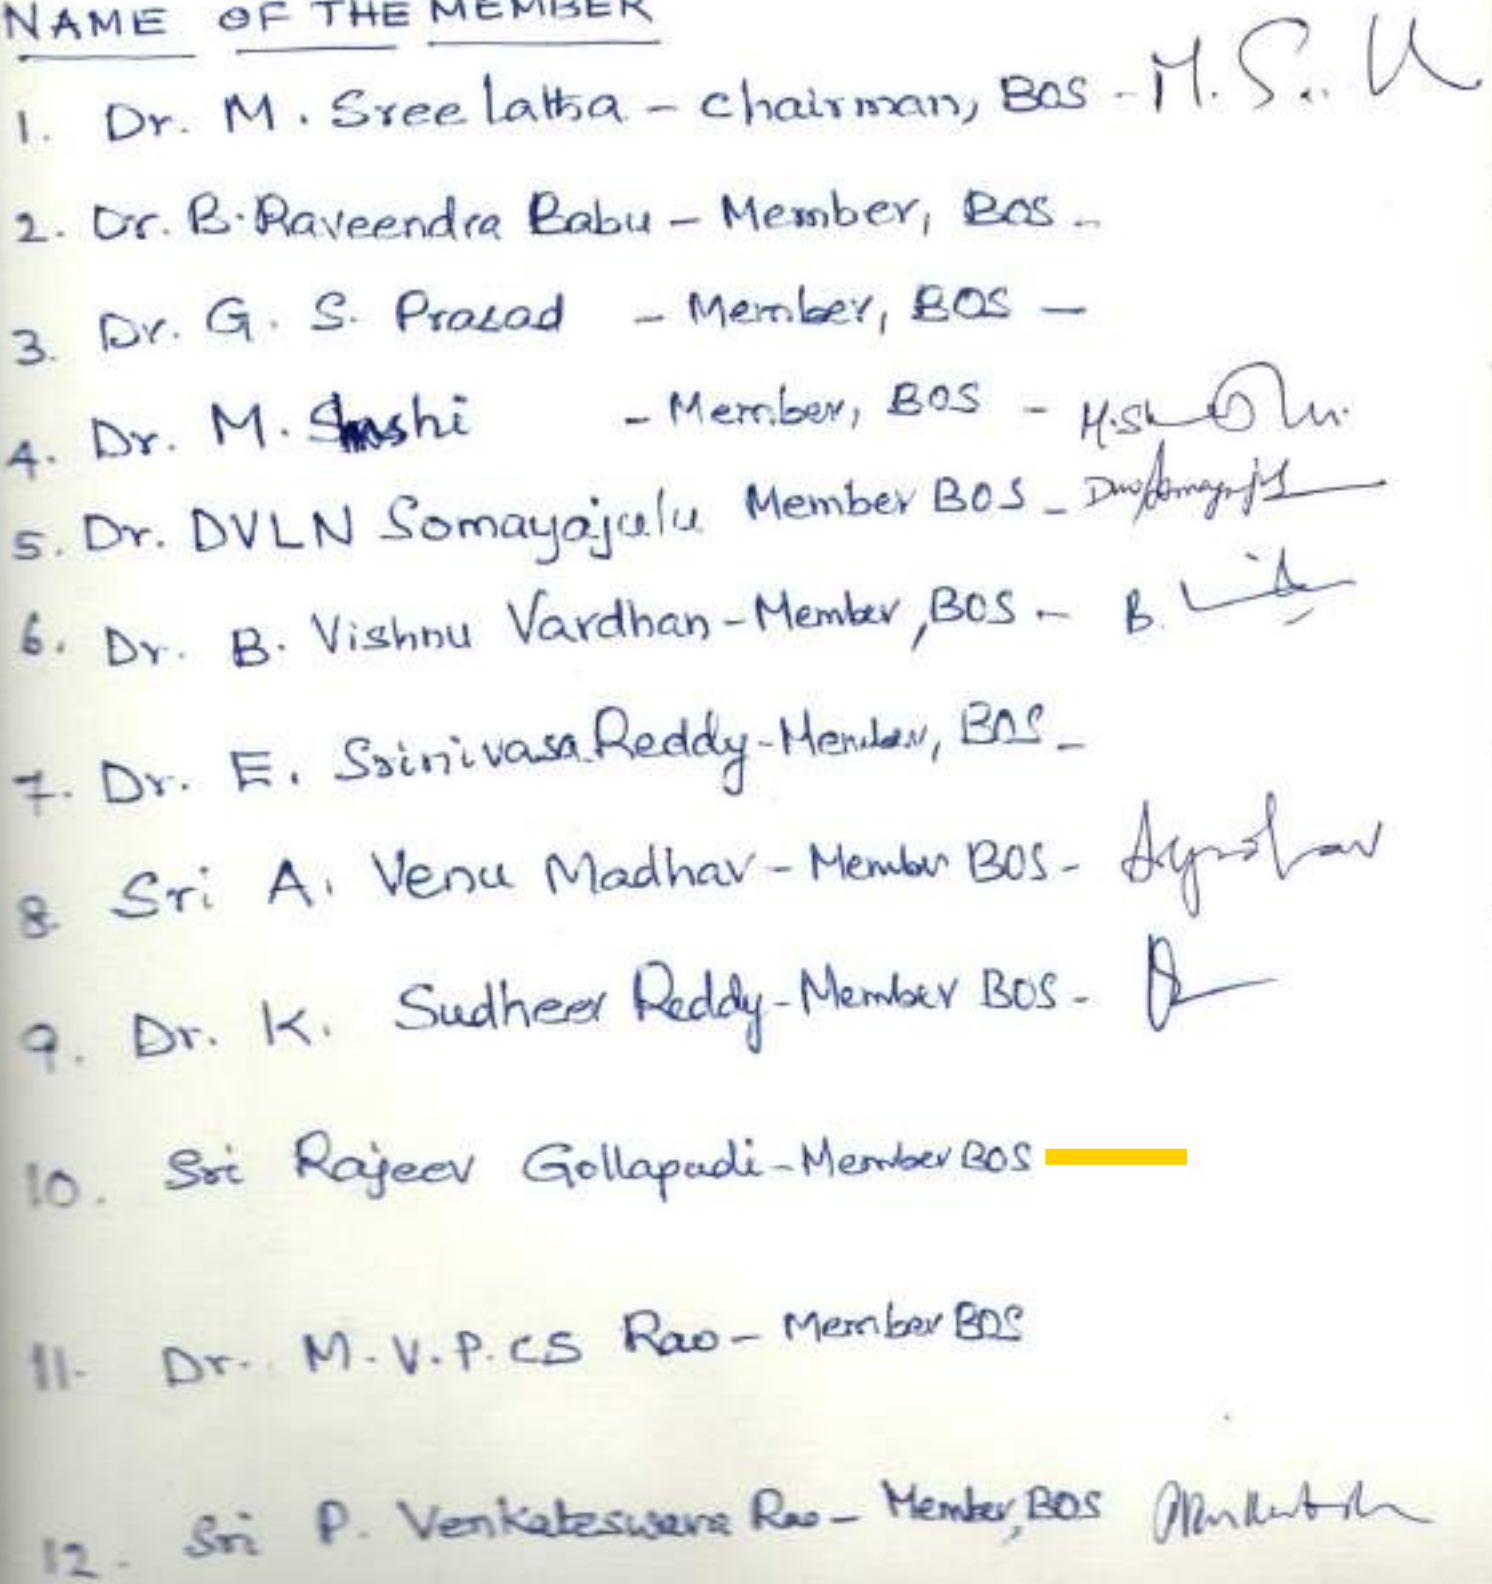 NAME OF THE MEMBER
1. Dr. M. Sreelatha - Chairman, BOS - M. S
2. Dr. B. Raveendra Babu - Member, BOS -
3. Dr. G. S. Prasad - Member, BOS -
4. Dr. M. Shashi - Member, BOS - M.Sh
5. Dr. DVLN Somayajulu Member BOS -
6. Dr. B. Vishnu Vardhan - Member, BOS - B.
7. Dr. E. Srinivasa Reddy - Member, BOS -
8. Sri A. Venu Madhav - Member BOS -
9. Dr. K. Sudheer Reddy - Member BOS -
10. Sri Rajeev Gollapudi - Member BOS
11. Dr. M.V.P.CS Rao - Member BOS
12. Sri P. Venkateswara Rao - Member, BOS